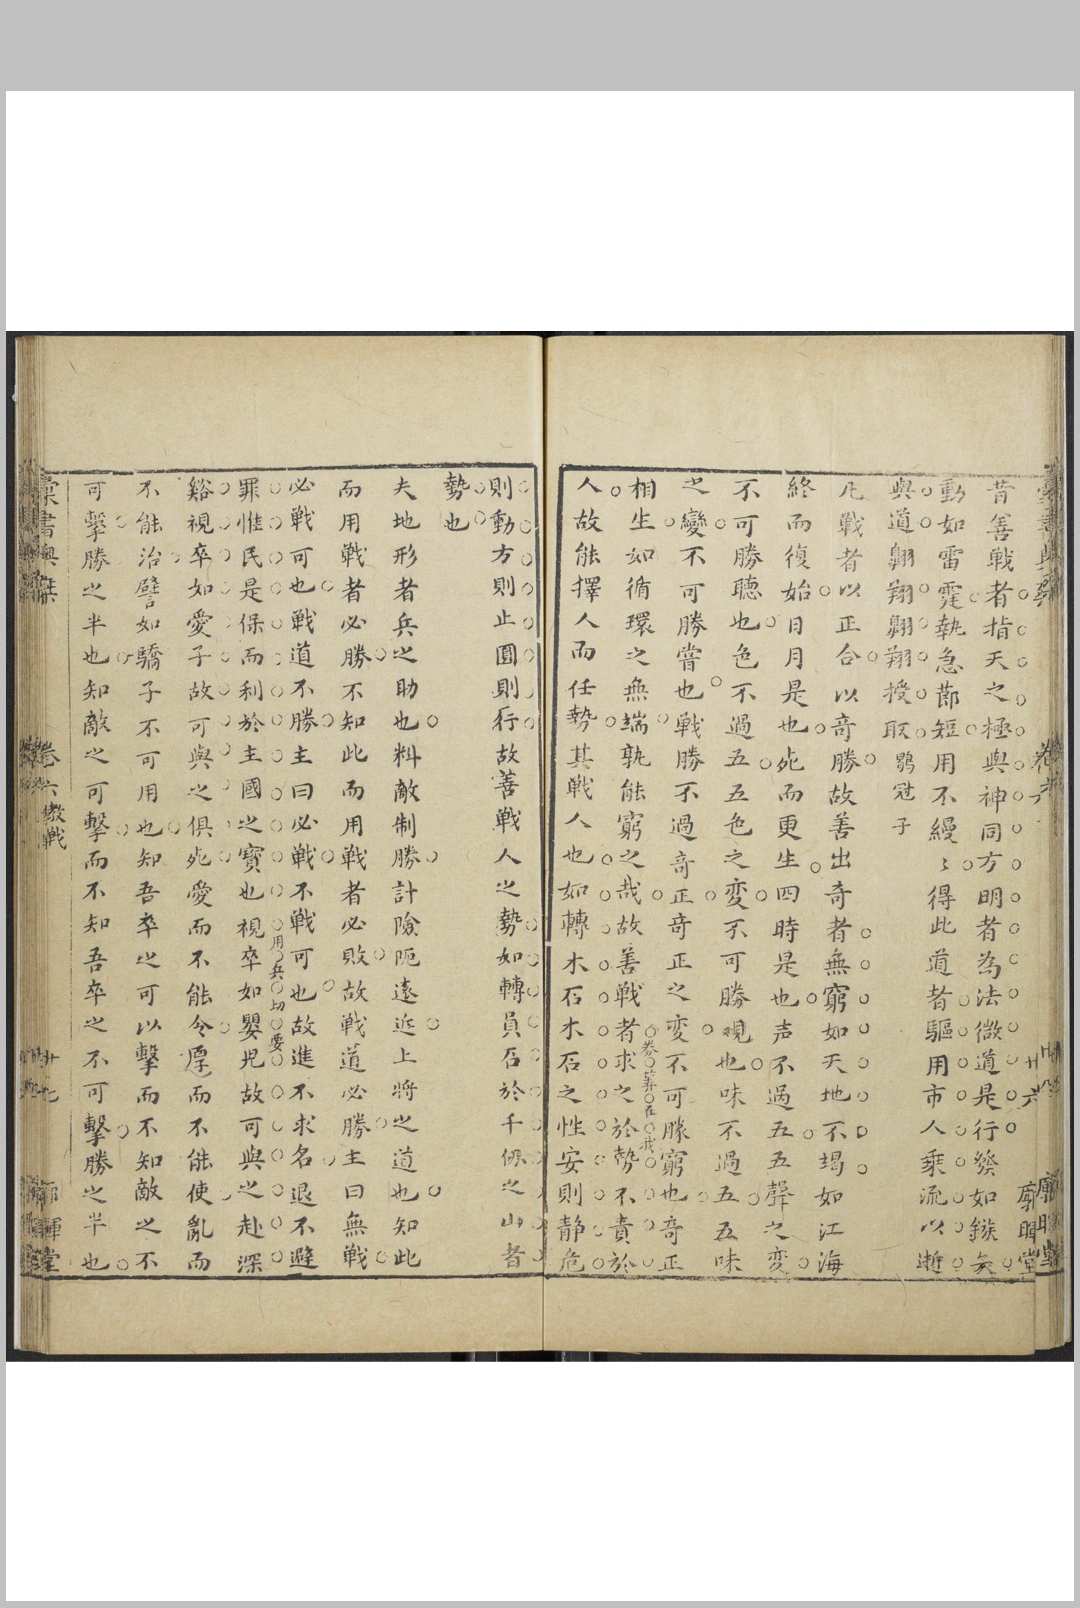 昔善戰者指天之極與神同方明者為法微道是行發如鏃矢
動如雷霆執急節短用不縵〻得此道者驅用市人乘流以逝
與道翺翔翺翔授取鶡冠子
凡戰者以正合以奇勝故善出奇者無窮如天地不竭如江海
終而復始日月是也死而更生四時是也声不過五五聲之変
不可勝聽也色不過五五色之変不可勝覌也味不過五五味
之變不可勝嘗也戰勝不過奇正奇正之変不可勝窮也奇正
相生如循環之無端孰能窮之哉故善戰者求之於勢不責於
人故能擇人而任勢其戰人也如轉木石木石之性安則静危
則動方則止圓則行故善戰人之勢如轉員石於千仞之山者
勢也
夫地形者兵之助也料敵制勝計險阨遠近上將之道也知此
而用戰者必勝不知此而用戰者必敗故戰道必勝主曰無戰
必戰可也戰道不勝主曰必戰不戰可也故進不求名退不避
用兵切要
罪惟民是保而利於主國之寶也視卒如嬰児故可與之赴深
谿視卒如愛子故可與之俱死愛而不能令厚而不能使亂而
不能治譬如驕子不可用也知吾卒之可以擊而不知敵之不
可擊勝之半也知敵之可擊而不知吾卒之不可擊勝之半也
卷六 教戰
廿七